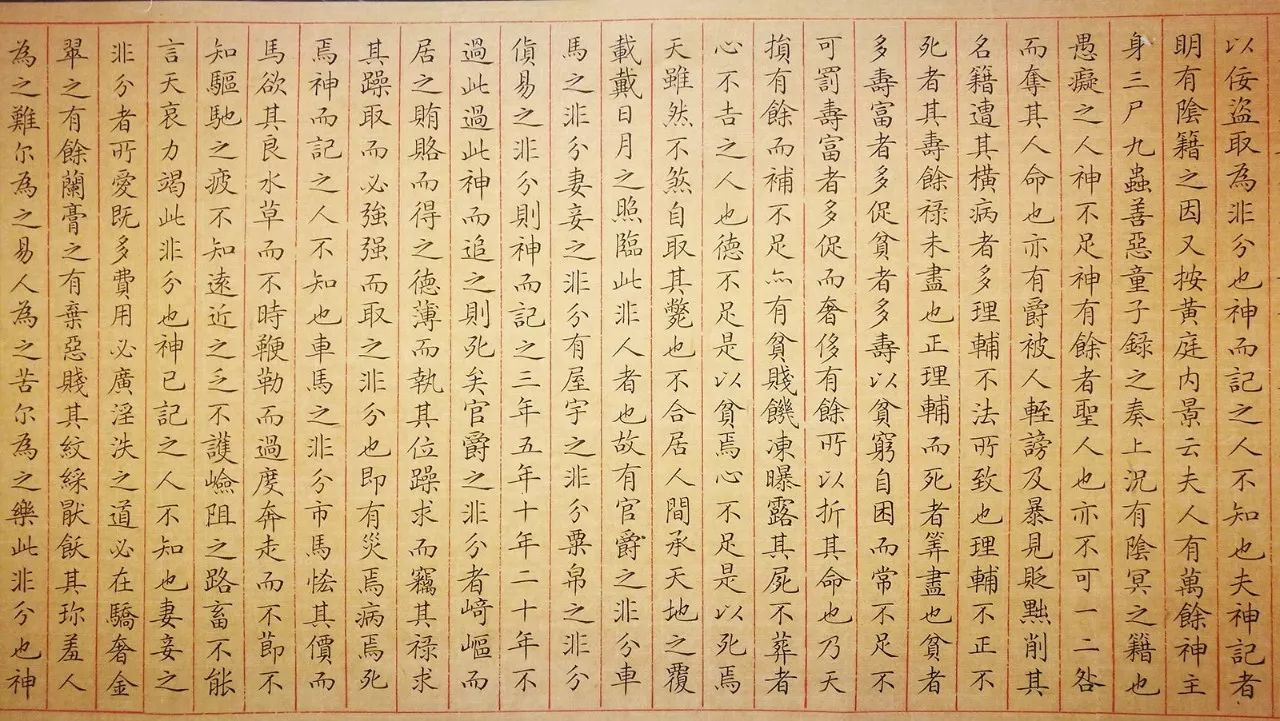 以佞盜取為非分也神而記之人不知也夫神記者
明有陰籍之因又按黄庭内景云夫人有萬餘神主
身三尸九蟲善惡童子録之奏上況有陰冥之籍也
愚癡之人神不足神有餘者聖人也亦不可一二咎
而奪其人命也亦有爵被人輊謗及暴見貶黜削其
名籍遭其横病者多理輔不法所致也理輔不正不
死者其壽餘禄未盡也正理輔而死者筭盡也貧者
多壽富者多促貧者多壽以貧窮自困而常不足不
可罰壽富者多促而奢侈有餘所以折其命也乃天
損有餘而補不足亦有貧賤饑凍曝露其屍不葬者
心不吉之人也德不足是以貧焉心不足是以死焉
天雖然不煞自取其斃也不合居人間承天地之覆
載戴日月之照臨此非人者也故有官爵之非分車
馬之非分妻妾之非分有屋宇之非分粟帛之非分
貨易之非分則神而記之三年五年十年二十年不
過此過此神而追之則死矣官爵之非分者﨑嶇而
居之賄賂而得之德薄而執其位躁求而竊其禄求
其躁取而必強强而取之非分也即有災焉病焉死
焉神而記之人不知也車馬之非分市馬恡其價而
馬欲其良水草而不時鞭勒而過度奔走而不節不
知驅馳之疲不知遠近之乏不護嶮阻之路畜不能
言天哀力竭此非分也神已記之人不知也妻妾之
非分者所愛既多費用必廣淫泆之道必在驕奢金
翠之有餘蘭膏之有棄惡賤其紋綵猒飫其珎羞人
為之難尔為之易人為之苦尔為之樂此非分也神